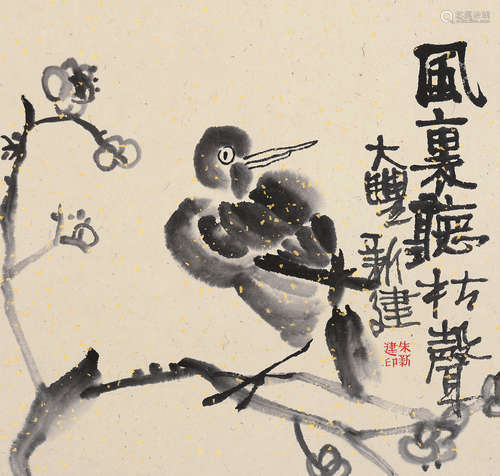 風裏聽枯聲
大豐新建
朱新
建印